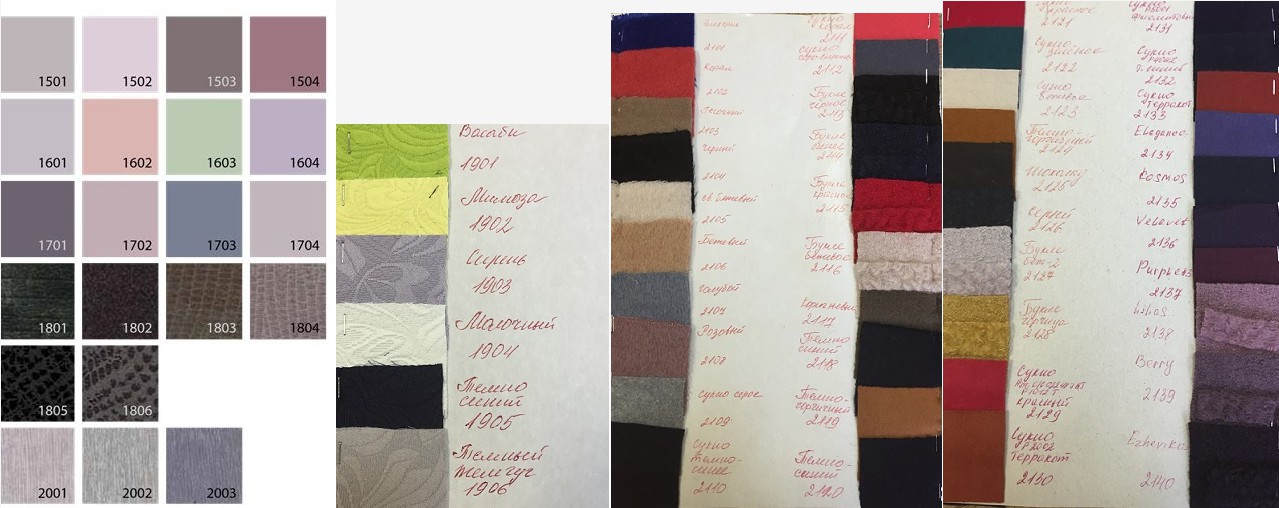 1501 1502 1503 1504
1601 1602 1603 1604
1701 1702 1703 1704
1801 1802 1803 1804
1805 1806
2001 2002 2003
Васаби
1901
Мимоза
1902
Сирень
1903
Молочный
1904
Темно
синий
1905
Темный
жемчуг
1906
2101
Коралл
2102
Песочный
2103
Черный
2104
св. бежевый
2105
Бежевый
2106
Голубой
2107
Розовый
2108
сукно серое
2109
Сукно
темно-
синее
2110
Сукно
2111
сукно
2112
Букле
черное
2113
Букле
синее
2114
Букле
красное
2115
Букле
бежевое
2116
Коричневый
2117
Темно
синий
2118
Темно-
горчичный
2119
Темно-
синий
2120
2121
Сукно
зеленое
2122
Сукно
бежевое
2123
Темно-
горчичный
2124
Шоколад
2125
Серый
2126
Букле
беж-2
2127
Букле
горчица
2128
Сукно
красный
2129
Сукно
Р2002
Терракот
2130
2131
Сукно
т.синий
2132
Сукно
терракот
2133
Elegance
2134
Kosmos
2135
Velovet
2136
2137
Lilias
2138
Berry
2139
Ezhevika
2140